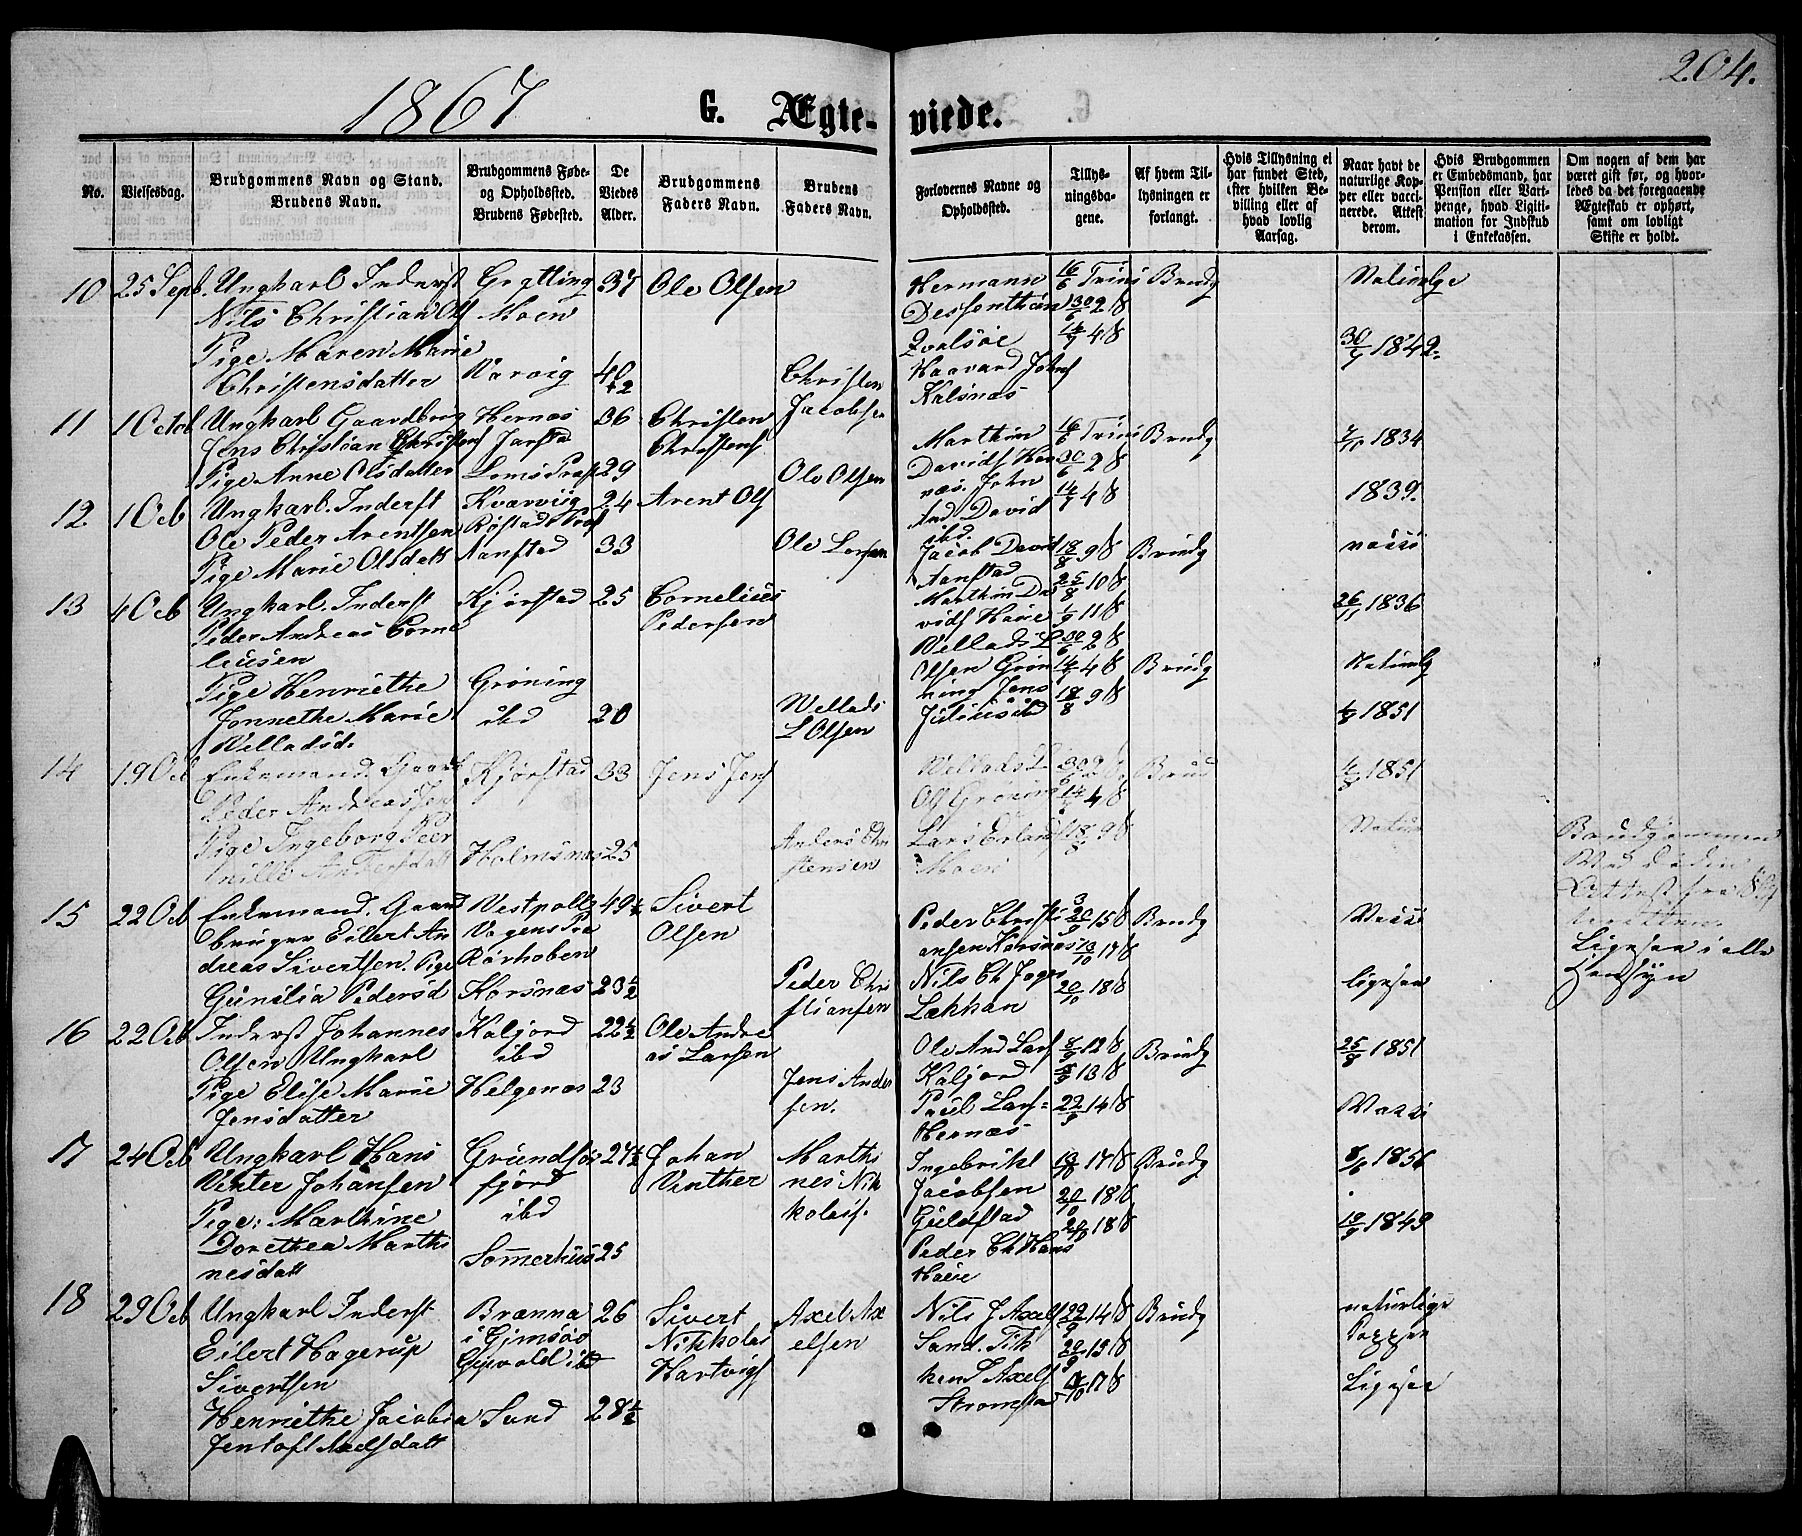 1867
G. Ægte-
viede.
204.
No.
Vielsesdag.
Brudgommens Navn og Stand.
Brudens Navn.
Brudgommens Føde-
og Opholdssted.
Brudens Fødested.
De
Viedes
Alder.
Brudgommens
Faders Navn.
Brudens
Faders Navn.
Forlovernes Navne og
Opholdssted.
Tillys-
ningsda-
gene.
Af hvem Til-
lysningen er
forlangt.
Hvis Tillysning ei
har fundet Sted,
efter hvilken Be-
villing eller af
hvad lovlig
Aarsag.
Naar havt de
naturlige Kop-
per eller vacci-
nerede. Attest
derom.
Hvis Brudgommen
er Embedsmand, har
Pension eller Vart-
penge, hvad Ligiti-
mation for Indskud
i Enkekassen.
Om nogen af dem har
været gift før, og hvor-
ledes da det foregaaende
Ægteskab er ophørt,
samt om lovligt
Skifte er holdt.
10
25 Sepb.
Ungkarl Inderst
Nils Christian Ols
Pige Maren Marie
Christensdatter
Grytting
Moen
Varvig
37
Ole Olsen
Christen
Jacobsen
Hermann
Haavard Johns
Kalsnæs
16/6 Trinis
30/6 2 S
14/7 4 S
Brudg
30/7 1842
11
1 Octob
Ungkarl Gaardbrug
Jens Christian Christens
Pige Anne Olsdatter
Hernæs
Jarsta
Loms Præst
36
29
Christen
Christens
Ole Olsen
Marthin
Davids Her
næs. John
And David
ibd.
16/6 Trinis
30/6 2 S
14/7 4 S
Brudg
1834
1839.
12
1 Ocb
Ungkarl. Inderst
Ole Peder Arentsen
Pige Marie Olsdatt
Kvarviig
Aanstad
24
33
Arent Ols
Ole Larsen
Jacob David
Aanstad
Marthin Da
vids Haue
18/8 9 S
25/8 10 S
1/9 11 S
Brudg
vacci
26/11 1836
13
4 Ocb
Ungkarl. Inderst
Peder Andreas Corne
liusen
Pige Henriethe
Jonnethe Marie
Velladsd.
Kjørstad
Grøning
ibd
25
20
Cornelius
Pedersen
Wellads
L Olsen
Wellads L
Olsen Grøn
ning Jens
Julius ibd
30/6 2 S
14/7 4 S
18/8 9 S
Brudg
Naturlig
1851
14
19 Ocb
Enkemand Gaard
Peder Andreas Jen
Pige Ingeborg Peer
nille Andersdatt
Kjørstad
Holmsnæs
33
25
Jens Jens
Anders Chri
stensen
Wellads L
Ols Grøning
Lars Erlands
Moen
30/6 2 S
14/7 4 S
18/8 9 S
Brud
1851
Natur
Brudgommen
Ligesaa i alle
Hensyn
15
22 Ocb
Enkemand. Gaard
bruger Eilert An
dreas Sivertsen. Pige
Gunilia Pedersd
Vestpolls
Vogens Præ
Rørhoben
Korsnæs
49 1/2
23 1/2
Sivert
Olsen
Peder Chri
stiansen
Peder Christi
ansen Korsnæs
Nils Ch Jager
Løkkan
15 S
13/10 17 S
20/10 18 S
Brudg
Vacci
ligesaa
16
22 Ocb
Inderst Johannes
Olsen Ungkarl
Pige Elise Marie
Jensdatter
Kaljord
ibd
Helgenæs
22 1/2
23
Ole Andre
as Larsen
Jens Ander
sen.
Ole And Lars
Kaljord
Paul Lars=
Hernæs
8/9 12 S
13 S
22/9 14 S
Brudg
25/8 1851
Vacci
17
24 Ocb
Ungkarl Hans
Venter Johansen
Pige: Marthine
Dorethea Marthi
nesdatt
Grundfør
fjord
ibd
Sommerhus
27 1/2
25
Johan
Vinther
Marthi
nes Nik
kolais.
Ingebrikt
Jacobsen
Guldstad
Peder Ch Hans
Haue
13/10 17 S
20/10 18 S
20/10 18 S
Brudg
8/6 1856
10/9 1849
18
29 Ocb
Ungkarl Inderst
Eilert Hagerup
Sivertsen
Henriethe Jacobia
Jentoft Axelsdatt
Brænna
i Gimsøe
ibd
Sand
26
28 1/2
Sivert
Nikkolai
Hartvigs
Axel Ax
elsen
Nils J Axels
Sand. Tih
kens S Axels
Stromsta
22/9 14 S
29/9 15 S
13/10 17 S
Brudg
naturlige
Popper
Ligesaa